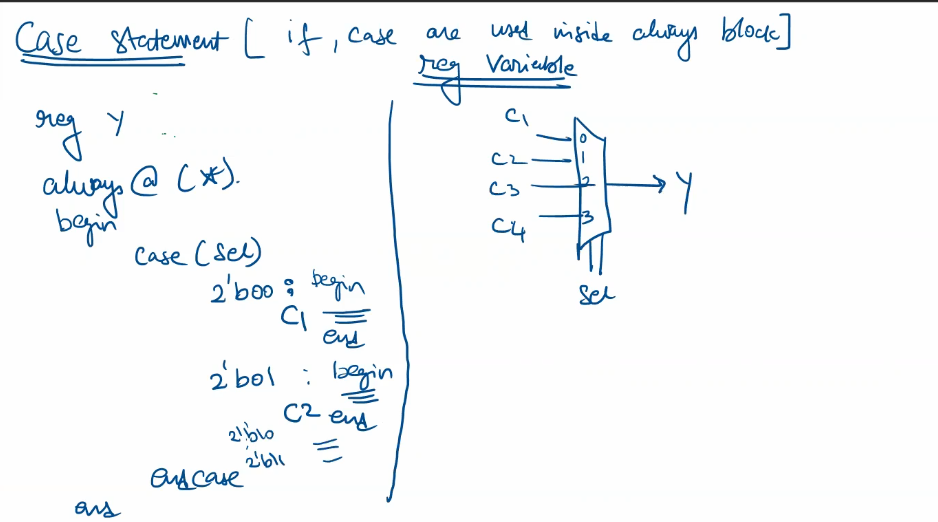 Case Statement [ if, case are used inside always block]
reg Variable
reg Y
always @ (*).
begin
case (sel)
2'b00 : begin
C1
end
2'b01 : begin
C2 end
2'b10
2'b11
endcase
end
C1
0
C2
1
C3
2
C4
3
Y
Sel